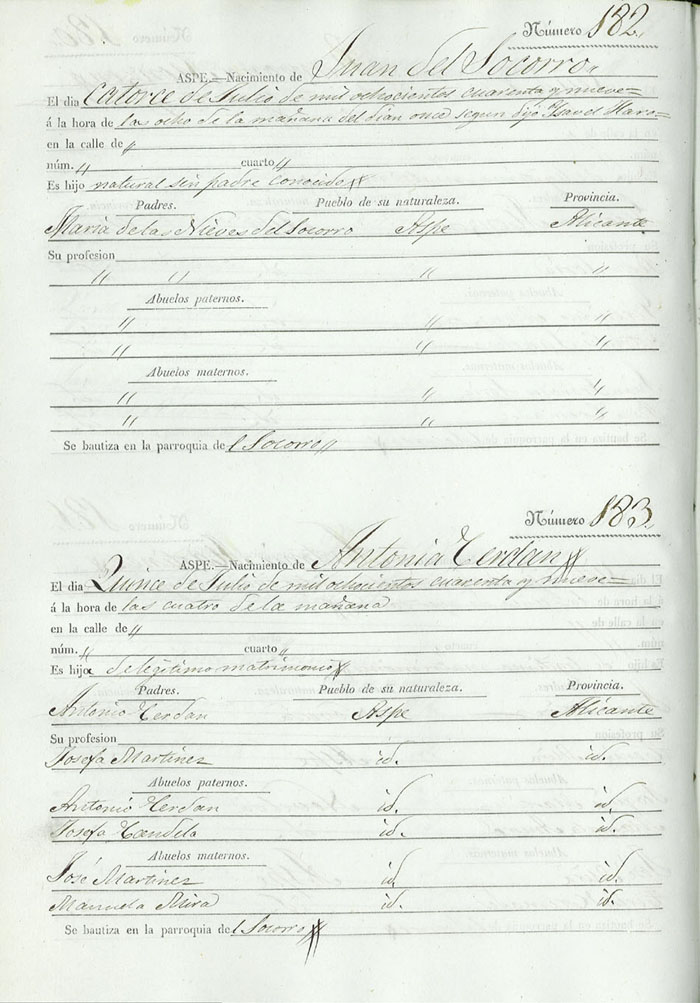 Número 182.
ASPE.—Nacimiento de Juan del Socorro
El dia Catorce de Julio de mil ochocientos cuarenta y nueve=
á la hora de las ocho de la mañana del dia once segun dijo Isavel Haro=
en la calle de "
núm. " cuarto "
Es hijo natural sin padre conocido
Padres. Pueblo de su naturaleza. Provincia.
Maria de las Nieves del Socorro Aspe Alicante
Su profesion
" " " "
Abuelos paternos.
" " "
" " "
Abuelos maternos.
" " "
" " "
Se bautiza en la parroquia del Socorro
Número 183.
ASPE.—Nacimiento de Antonia Cerdan
El dia Quince de Julio de mil ochocientos cuarenta y nueve=
á la hora de las cuatro de la mañana
en la calle de "
núm. " cuarto "
Es hija de legitimo matrimonio
Padres. Pueblo de su naturaleza. Provincia.
Antonio Cerdan Aspe Alicante
Su profesion
Josefa Martinez id. id.
Abuelos paternos.
Antonio Cerdan id. id.
Josefa Candela id. id.
Abuelos maternos.
José Martinez id. id.
Manuela Mira id. id.
Se bautiza en la parroquia del Socorro